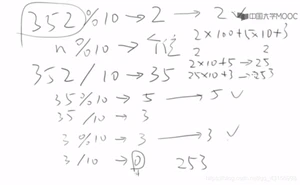 352 % 10 → 2 → 2 ✓
中国大学MOOC
2×100+5×10+3
n % 10 → 个位
2 2
352 / 10 → 35
2×10+5 → 25
25×10+3 → 253
35 % 10 → 5 → 5 ✓
35 / 10 → 3
3 % 10 → 3 → 3 ✓
3 / 10 → 0
253